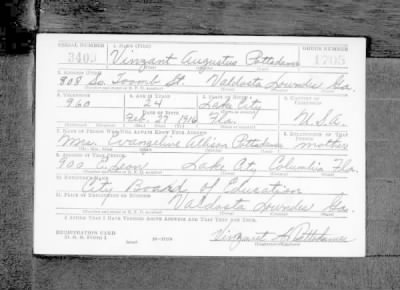 SERIAL NUMBER 1. NAME (Print) ORDER NUMBER
3409 Vinzant Augustus Pottsdamer 1705
2. ADDRESS (Print)
808 So. Toombs St. Valdosta Lowndes Ga.
3. TELEPHONE 4. AGE IN YEARS 5. PLACE OF BIRTH 6. COUNTRY OF CITIZENSHIP
960 24 Lake City
DATE OF BIRTH
Feb. 27 1916 Fla. U.S.A.
7. NAME OF PERSON WHO WILL ALWAYS KNOW YOUR ADDRESS 8. RELATIONSHIP OF THAT PERSON
Mrs. Evangeline Allison Pottsdamer mother
9. ADDRESS OF THAT PERSON
900 E. Leon Lake City Columbia Fla.
10. EMPLOYER'S NAME
City Board of Education
11. PLACE OF EMPLOYMENT OR BUSINESS
Valdosta Lowndes Ga.
I AFFIRM THAT I HAVE VERIFIED ABOVE ANSWERS AND THAT THEY ARE TRUE.
REGISTRATION CARD
D. S. S. FORM 1 Vinzant A. Pottsdamer